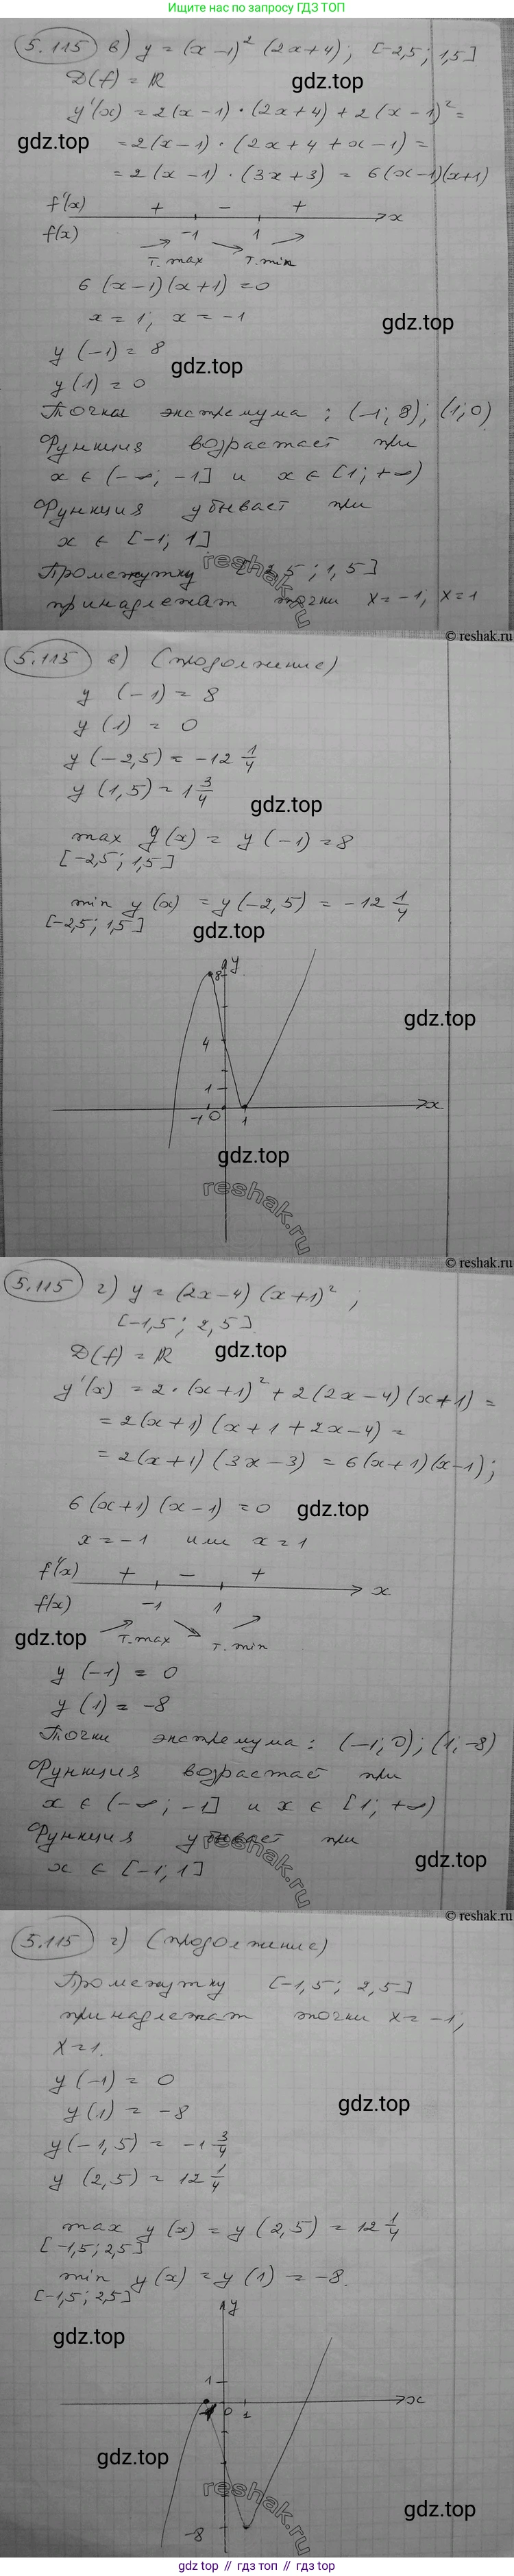 Ищите нас по запросу ГДЗ ТОП
5.115 в) y = (x-1)² (2x+4); [-2,5; 1,5]
D(f) = ℝ
gdz.top
y'(x) = 2(x-1)·(2x+4) + 2(x-1)² =
gdz.top
= 2(x-1)·(2x+4+x-1) =
= 2(x-1)·(3x+3) = 6(x-1)(x+1)
f'(x) + - + x
f(x) -1 1
т. max т. min
6(x-1)(x+1) = 0
x = 1; x = -1
gdz.top
y(-1) = 8
gdz.top
y(1) = 0
Точки экстремума: (-1; 8); (1; 0)
Функция возрастает при
x ∈ (-∞; -1] и x ∈ [1; +∞)
Функция убывает при
x ∈ [-1; 1]
Промежутку [-2,5; 1,5]
принадлежат точки x = -1, x = 1
reshak.ru
© reshak.ru
5.115 в) (продолжение)
y(-1) = 8
y(1) = 0
y(-2,5) = -12 1/4
y(1,5) = 1 3/4
gdz.top
max y(x) = y(-1) = 8
[-2,5; 1,5]
min y(x) = y(-2,5) = -12 1/4
[-2,5; 1,5]
gdz.top
y
8
gdz.top
4
1
x
-1 0 1
gdz.top
reshak.ru
© reshak.ru
5.115 г) y = (2x-4)(x+1)²,
[-1,5; 2,5].
D(f) = ℝ
gdz.top
y'(x) = 2·(x+1)² + 2(2x-4)(x+1) =
= 2(x+1)(x+1+2x-4) =
= 2(x+1)(3x-3) = 6(x+1)(x-1);
6(x+1)(x-1) = 0
gdz.top
x = -1 или x = 1
f'(x) + - + x
f(x) -1 1
gdz.top
т. max т. min
y(-1) = 0
y(1) = -8
Точки экстремума: (-1; 0); (1; -8)
Функция возрастает при
x ∈ (-∞; -1] и x ∈ [1; +∞)
Функция убывает при
x ∈ [-1; 1]
gdz.top
reshak.ru
© reshak.ru
5.115 г) (продолжение)
Промежутку [-1,5; 2,5]
принадлежат точки x = -1,
x = 1.
y(-1) = 0
gdz.top
y(1) = -8
y(-1,5) = -1 3/4
y(2,5) = 12 1/4
max y(x) = y(2,5) = 12 1/4
[-1,5; 2,5]
min y(x) = y(1) = -8.
[-1,5; 2,5]
y
gdz.top
1
x
0 1
gdz.top
reshak.ru
gdz.top
-8
gdz.top // гдз топ // gdz.top